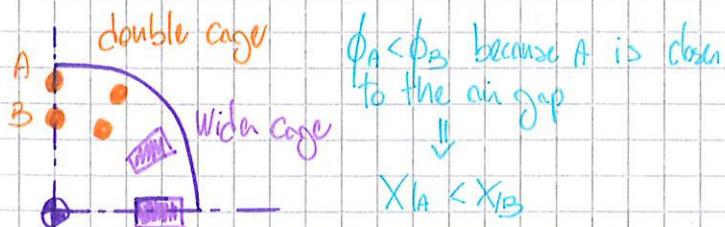 double cage
A
B
Wider cage
ϕA < ϕB because A is closer
to the air gap
⇓
XlA < XlB